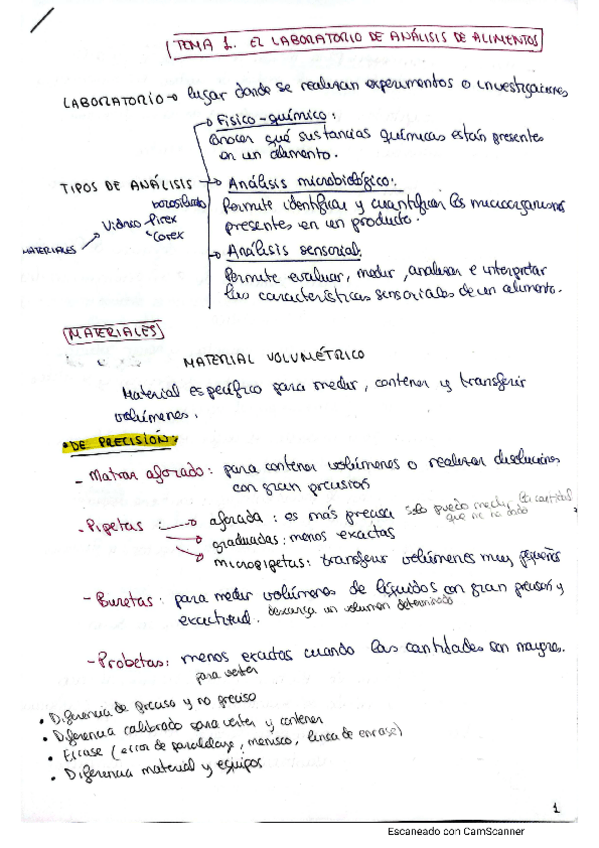 TEMA 1. EL LABORATORIO DE ANÁLISIS DE ALIMENTOS
LABORATORIO → lugar donde se realizan experimentos o investigaciones
Físico-químico:
Conocer qué sustancias químicas están presentes
en un alimento.
TIPOS DE ANÁLISIS → Análisis microbiológico:
borosilicato
Permite identificar y cuantificar los microorganismos
Vidrio Pirex
presentes en un producto.
Corex
MATERIALES
Análisis sensorial:
Permite evaluar, medir, analizar e interpretar
las características sensoriales de un alimento.
MATERIALES
MATERIAL VOLUMÉTRICO
Material específico para medir, contener y transferir
volúmenes.
• DE PRECISIÓN:
- Matraz aforado: para contener volúmenes o realizar disoluciones
con gran precisión
- Pipetas: → aforada: es más precisa solo puedo medir la cantidad
que me ha dado
→ graduadas: menos exactas
→ micropipetas: transferir volúmenes muy pequeños
- Buretas: para medir volúmenes de líquidos con gran precisión y
exactitud. descarga un volumen determinado
- Probetas: menos exactas cuando las cantidades son mayores.
para verter
• Diferencia de preciso y no preciso
• Diferencia calibrado para verter y contener
• Enrase (error de paralelaje, menisco, línea de enrase)
• Diferencia material y equipos
1
Escaneado con CamScanner